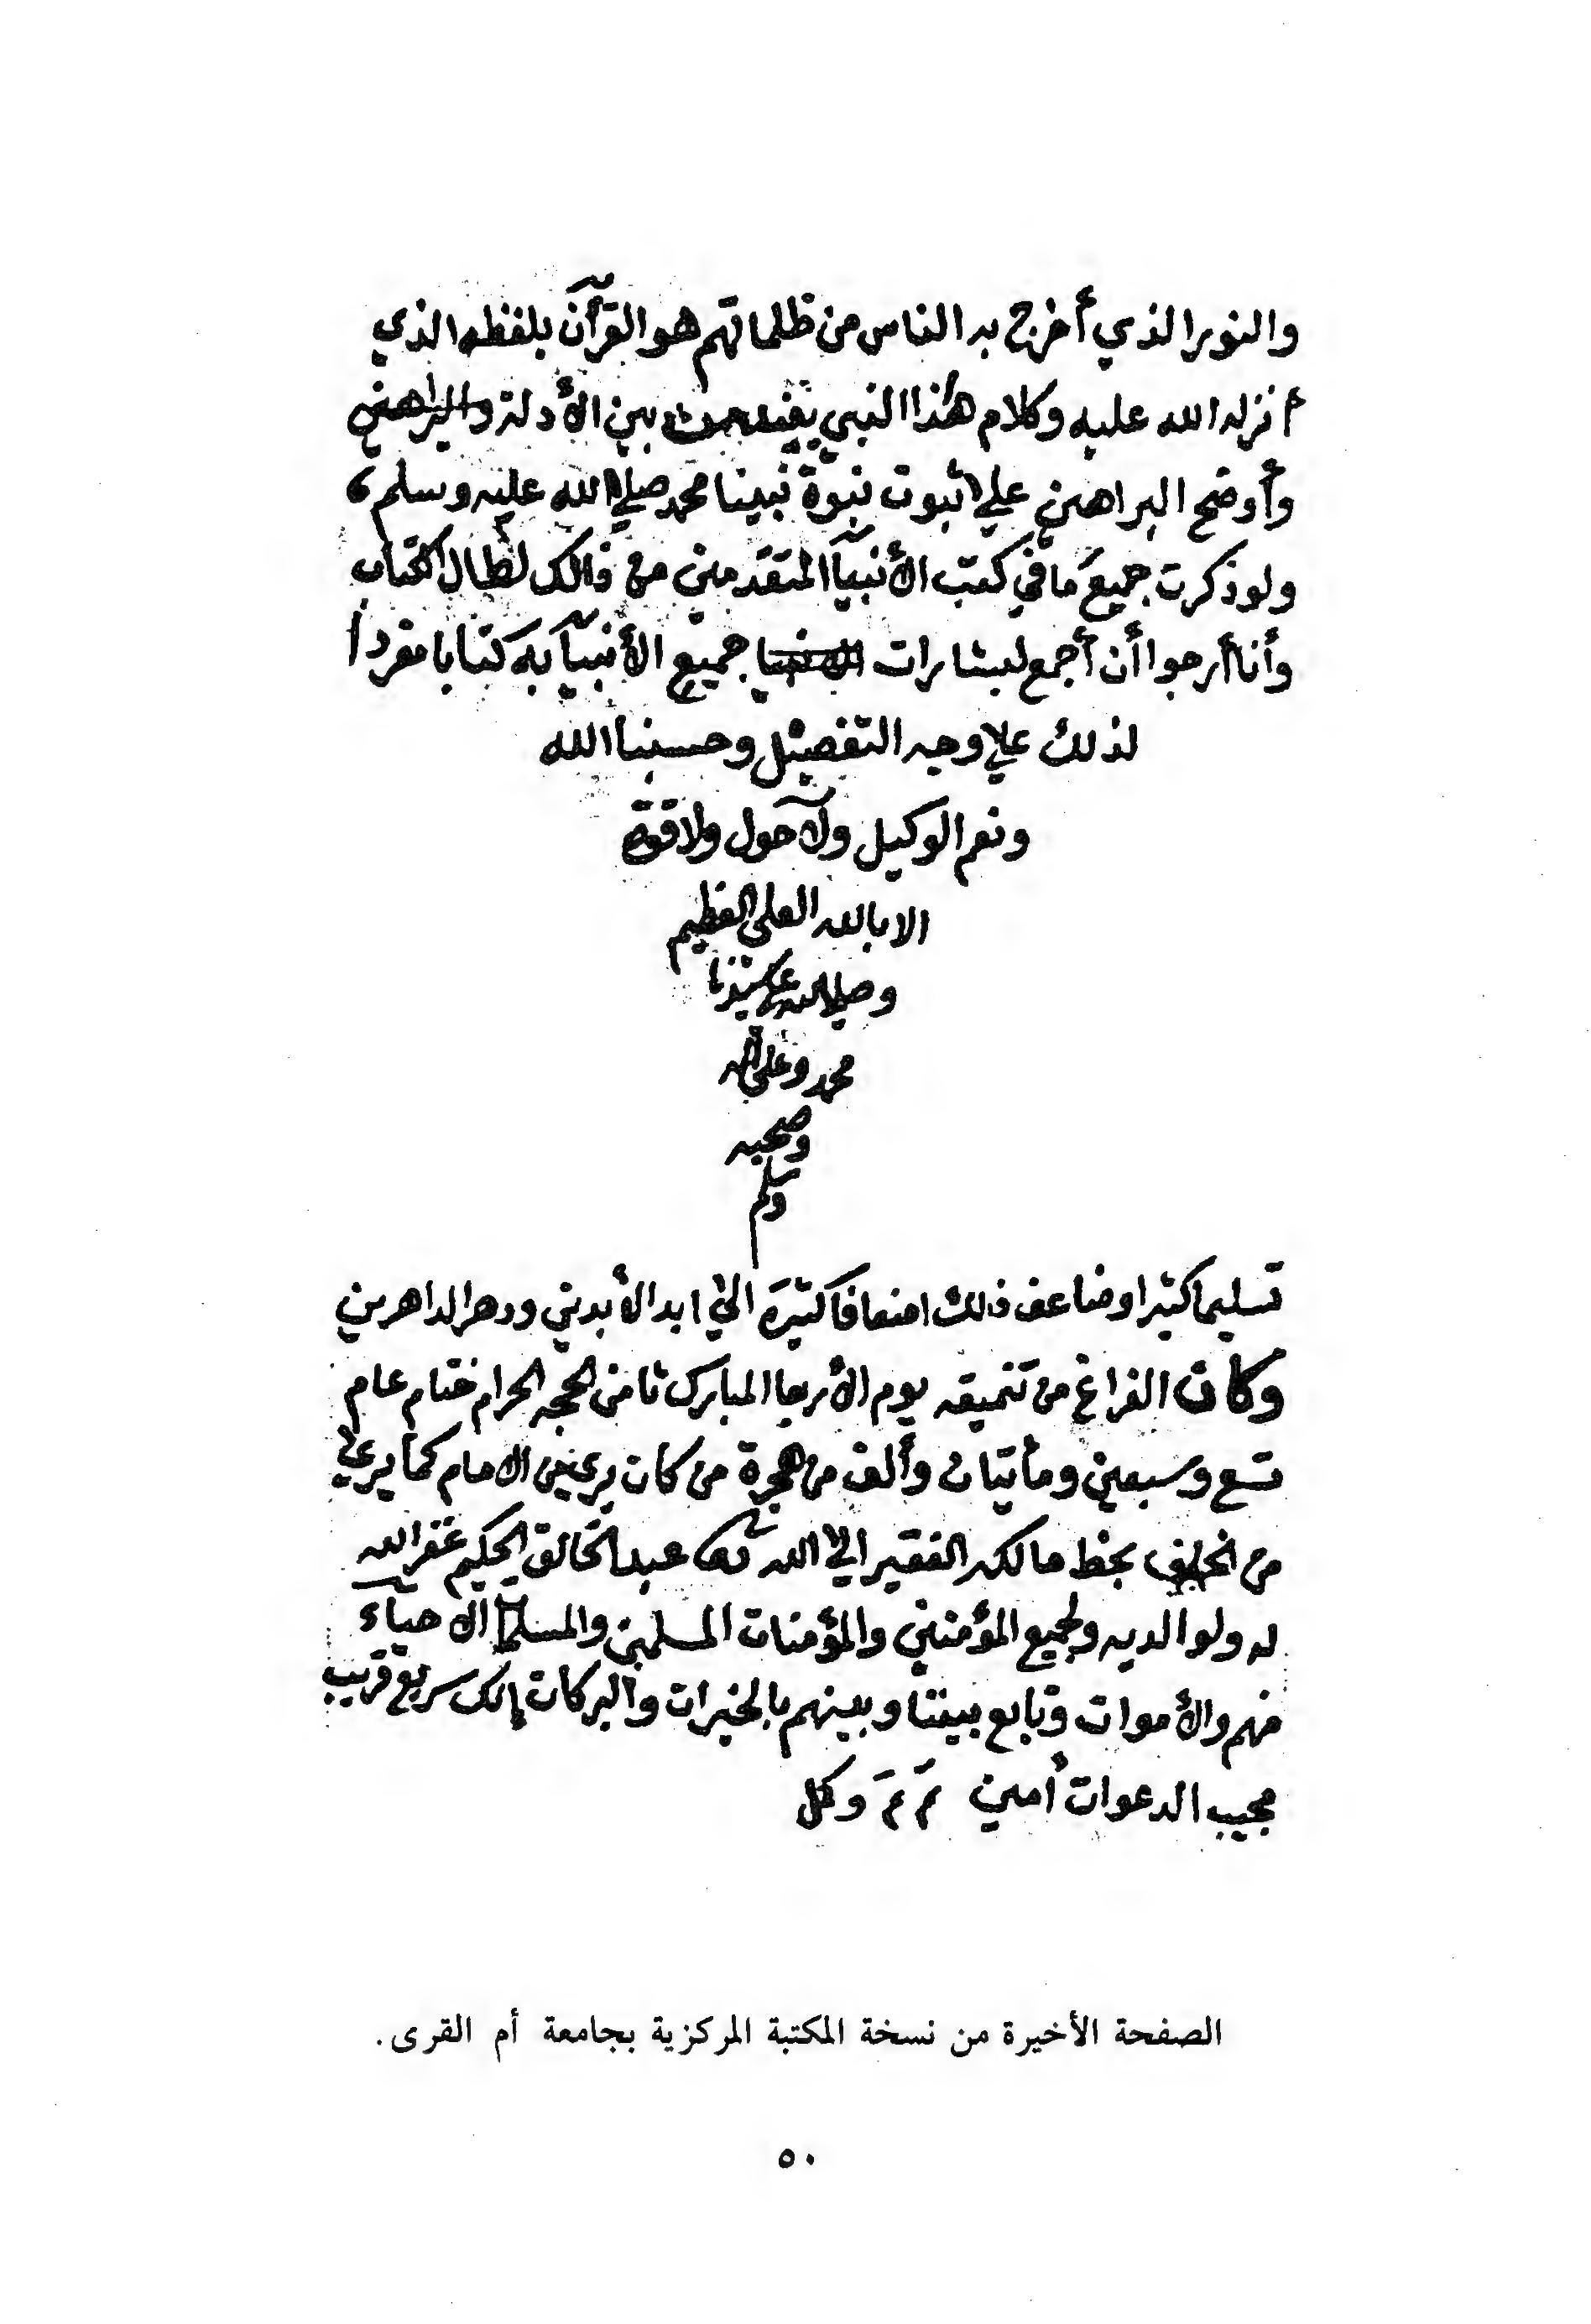 والنور الذي أخرج به الناس من ظلماتهم هو القرآن بلفظه الذي
أنزله الله عليه وكلام هذا النبي بين الأدلة والبراهين
وأوضح البراهين علي ثبوت نبوة نبينا محمد صلي الله عليه وسلم،
ولو ذكرت جميع ما في كتب الأنبيآ المتقدمين من ذالك لطال الكتاب
وأنا أرجوا أن أجمع لبشارات جميع الأنبيآ به كتابا مفردا
لذلك علي وجه التفصيل وحسبنا الله
ونعم الوكيل ولا حول ولا قوة
الا بالله العلي العظيم
وصلي الله علي سيدنا
محمد وعلي اله
وصحبه
وسلم
تسليما كثيرا وضاعف ذلك اضعافا كثيرة الي ابد الأبدين ودهر الداهرين
وكان الفراغ من تنميقه يوم الأربعا المبارك ثامن الحجه الحرام ختام عام
تسع وسبعين ومأتيان وألف من هجرة من كان يري من الامام كما يري
من الخلف بخط مالكه الفقير الي الله عبد الخالق الحكيم غفر الله
له ولوالديه ولجميع المؤمنين والمؤمنات المسلمين والمسلمات الاحياء
منهم والأموات وتابع بيننا وبينهم بالخيرات والبركات إنك سريع قريب
مجيب الدعوات أمين تم تم وكل
الصفحة الأخيرة من نسخة المكتبة المركزية بجامعة أم القرى.
٥٠